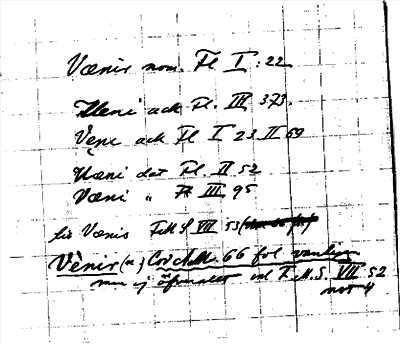 Vænir nom. Fl I: 22
Væni ack Fl. III 373.
Vęne ack Fl I 23 II 69
Væni dat Fl. II 52
Væni " Fl III 95
Vænis FMS VII 53
Vènir (a) Cod AM. 66 fol vanligen
men ej vid F.M.S. VII 52
not 4